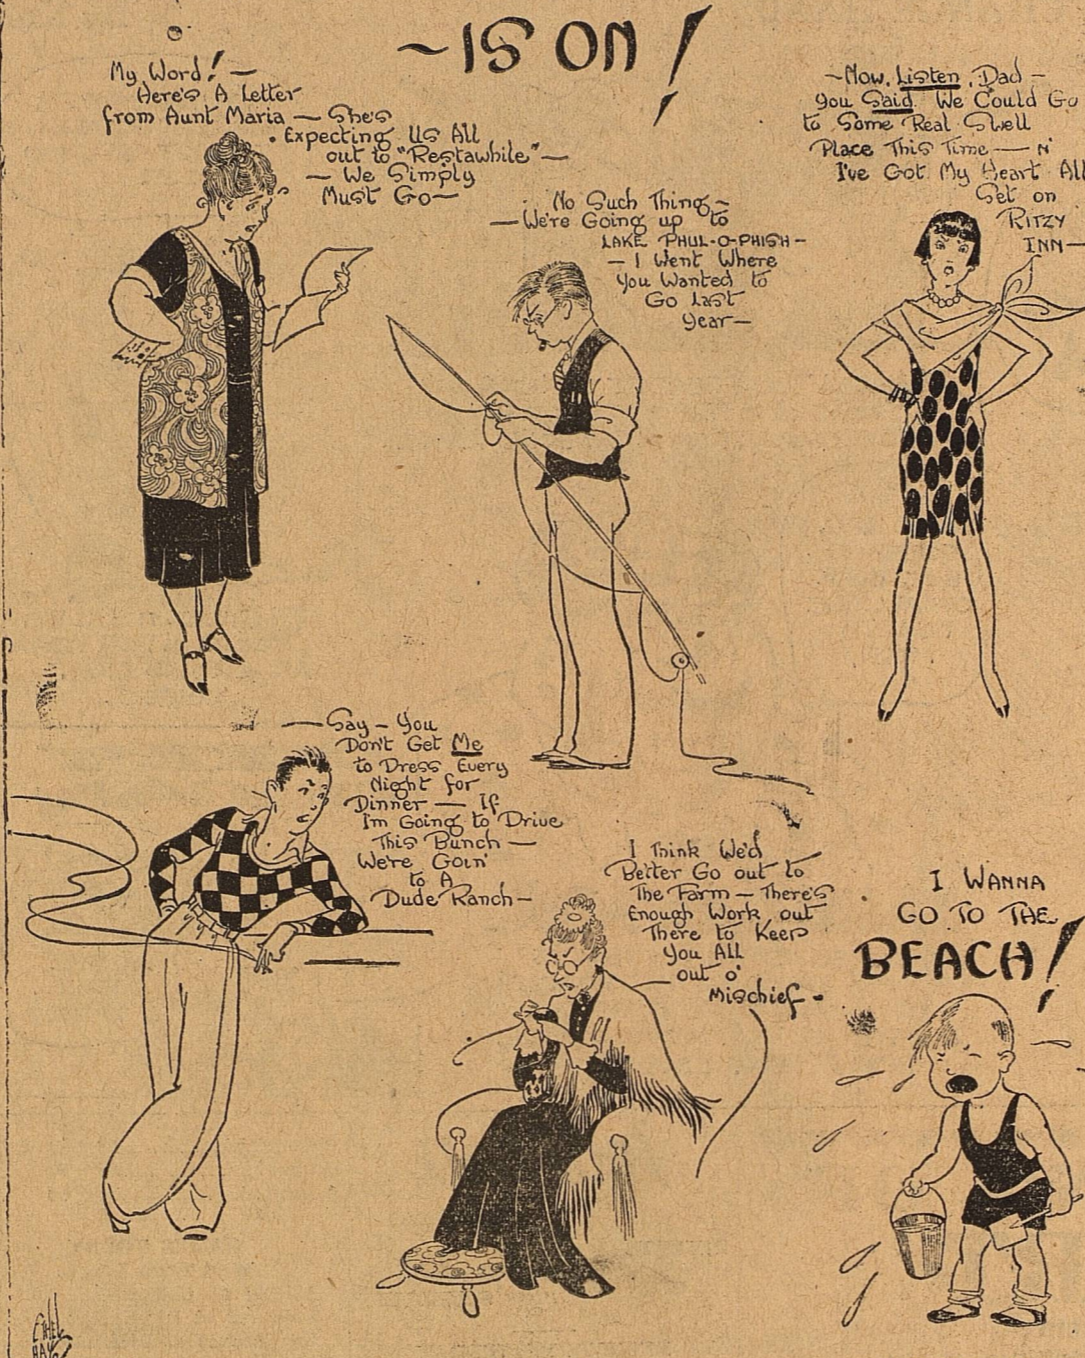 ~IS ON!
My Word! —
Here's A Letter
from Aunt Maria — She's
Expecting Us All
out to "Restawhile" —
— We Simply
Must Go —
No Such Thing —
— We're Going up to
LAKE PHUL-O-PHISH —
— I Went Where
You Wanted to
Go Last
Year —
— Now, Listen, Dad —
You Said We Could Go
to Some Real Swell
Place This Time — N'
I've Got My Heart All
Set on
RITZY
INN —
— Say — You
Don't Get Me
to Dress Every
Night for
Dinner — If
I'm Going to Drive
This Bunch —
We're Goin'
to A
Dude Ranch —
I Think We'd
Better Go out to
The Farm — There's
Enough Work out
There to Keep
You All
out o'
Mischief.
I WANNA
GO TO THE
BEACH!
ETHEL
HAYS